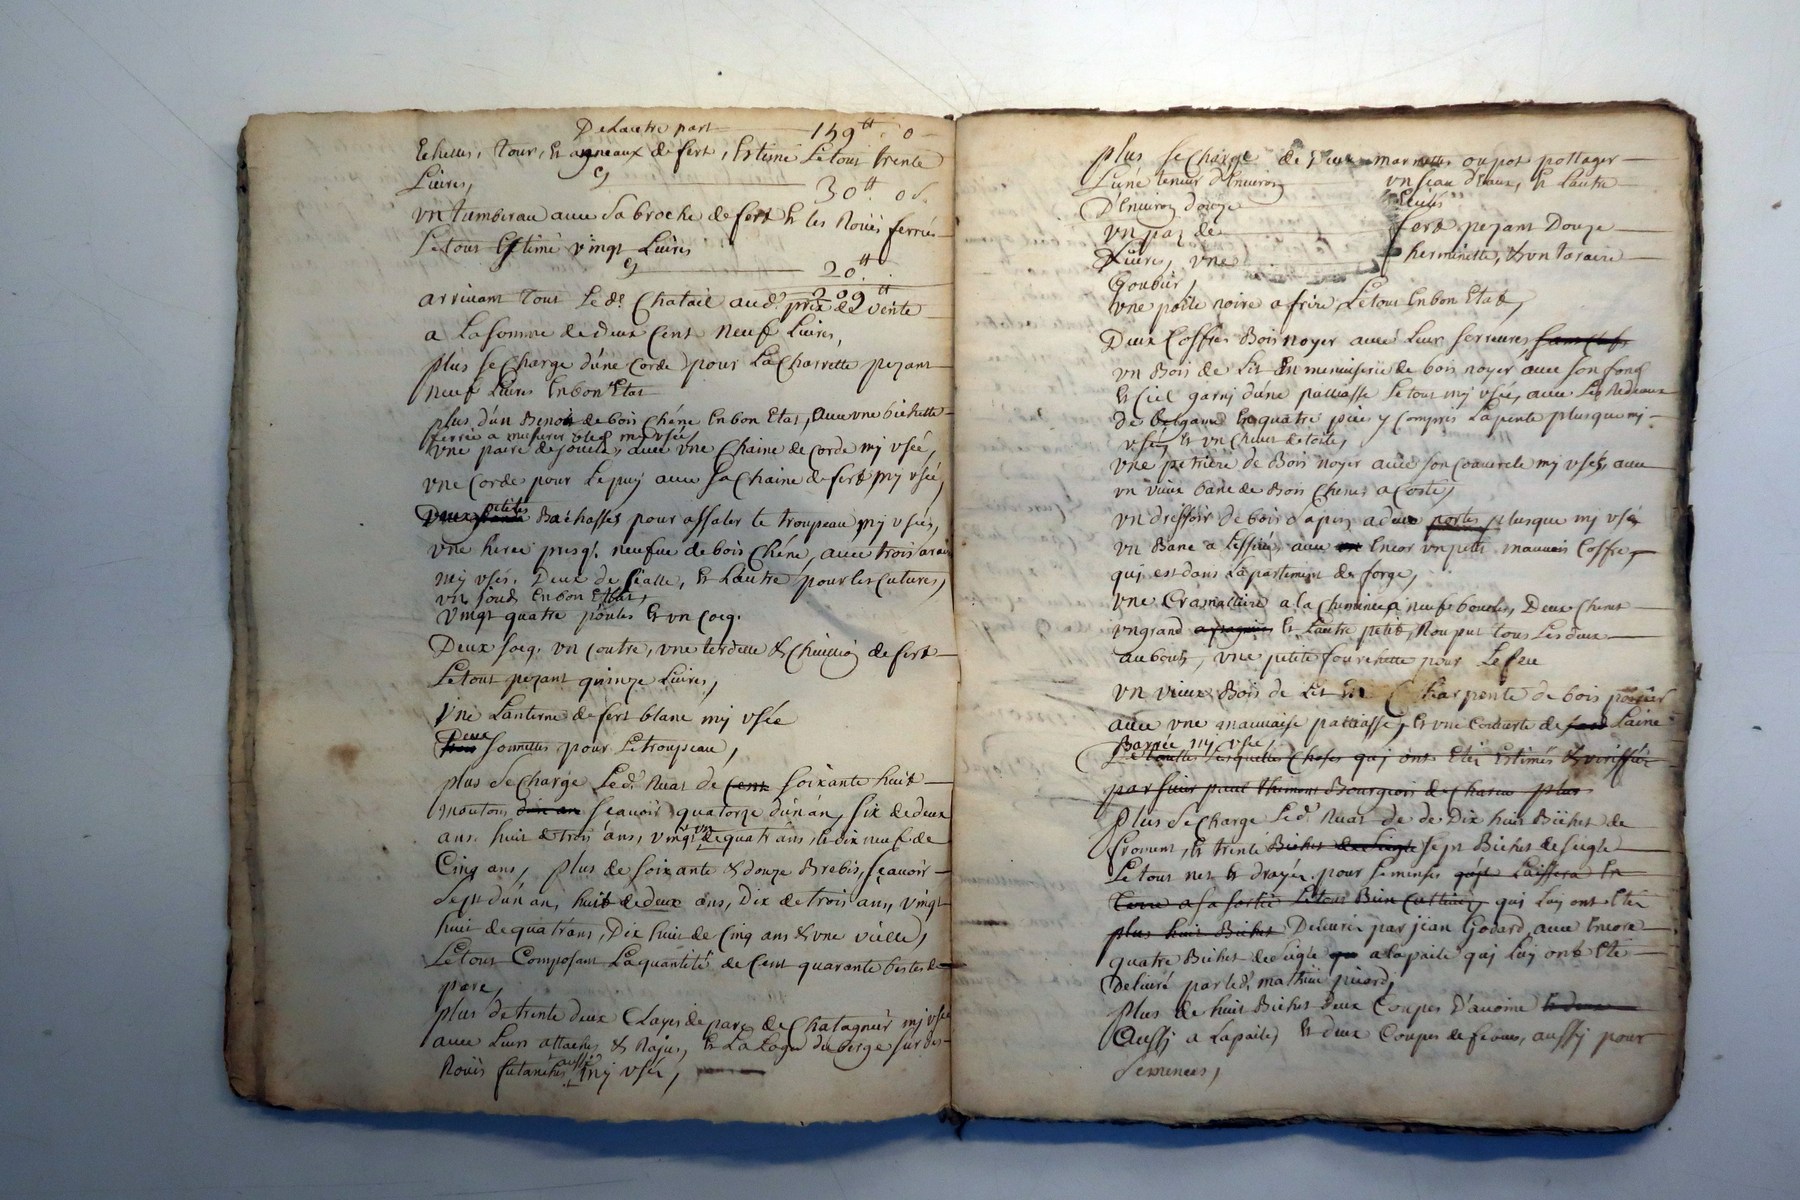 De Lautre part 159tt. 0
Echelles, Tour, Et agneaux de fert, Estimé Le tout trente
Livres, cy 30tt. 0 s.
vn tumberau avec sa broche de fert Et les Rouës ferrés
Le tout Estimé vingt Livres
cy 20tt.
209tt
arrivant tout Le dt. Chatail aud. prix de vente
a La somme de deux Cent Neuf Livres,
plus se Charge d'une Corde pour La Charrette pezant
neuf Livres En bon Etat
plus d'un Benon de bois Chéne En bon Etat, avec vne bichette
ferrée a mesurer bled my vsée
vne paire de avec vne Chaine de Corde my vsée,
vne Corde pour Le puy avec sa Chaine de fert my vsée,
Deux petites Bachasses pour assaler le troupeau my vsées,
vne herce presq. neufve de bois Chéne, avec trois arais
my vsés. Deux de Sialle, Et Lautre pour les Cutures,
vn En bon Etat,
vingt quatre poules Et vn Cocq.
Deux socq. vn Coutre, vne & Chuillion de fert
Le tout pezant quinze Livres,
Vne Lanterne de fert blanc my vsée
Deux sonnettes pour Le troupeau,
plus Se Charge Led. Ruas de Cent Soixante huit
moutons dix an sçavoir quatorze d'un an, Six de deux
ans. huit de trois ans, vingt vn de quatr'ans, Et dix neuf de
Cinq ans, plus de soixante & douze Brebis, sçavoir
Sept d'un an, huit de deux ans, Dix de trois ans, vingt
huit de quatr'ans, Dix huit de Cinq ans & vne vielle,
Le tout Composant La quantité de Cent quarante bestes de
parc,
plus de trente deux Clayes de parc de Chatagnier my vsée
avec Leurs attaches & Et La Loge du berge sur des
Rouës aussi my vsée,
plus Se Charge de Deux marmittes ou pot pottager
L'une teneur d'Environ vn seau d'eaux, Et Lautre
D'Environ douze Ecuës
vn paz de fert pezant Douze
Livres, vne herminette, & vn taraire
Goubier,
vne poile noire a frire, Le tout En bon Etat,
Deux Coffres Bois noyer avec Leurs serrures, sans Clefs
vn Bois de Lit En menuiserie de bois noyer avec son fong
Et Ciel garny d'une palliasse Le tout my vsée, avec Les Redeaux
de bergame En quatre pieces y Compris La pente plusque my
vsés, Et vn de toile,
vne petriere de Bois noyer avec son Couvercle my vsée, avec
vn vieux banc de Bois Chenes a Costé,
vn dressoir de bois Sapin a deux portes plusque my vsé
vn Banc a Lessive, avec Encor vn petit mauvais Coffre,
qui est dans L'apartement de forge,
vne Cramalliere a la Cheminée a neuf boucles, Deux Chenet
vn grand Et Lautre petit, Rompus tous Les deux
au bout, vne petite fourchette pour Le feu
vn vieux Bois de Lit En Charpente de bois
avec vne mauvaise palliasse, Et vne Couverte de Laine
Barrée my vsée,
De toutes Lesquelles Choses qui ont Eté Estimés & vériffiée
par sieur paul thimont Bourgeois de plus
Plus Se Charge Led. Ruas de de Dix huit Bichet de
froment, Et trente Bichet de Siegle sept Bichet de Siegle
Le tout net Et drayés pour semences Laissera En
terre a sa sortie Le tout Bien Cultivé, qui Luy ont Eté
plus huit Bichet Delivré par jean Godard, avec Encore
quatre Bichet de Siegle a La paile qui Luy ont Eté
Delivré par led. mathieu picard,
plus de huit Bichet Deux Coupes D'avoine Et deux
Aussy a La paile, Et deux Coupes de feves, aussy pour
Semences,